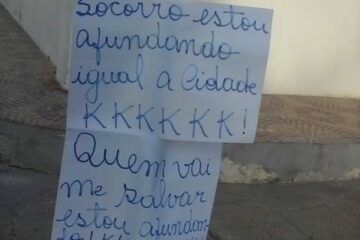 Socorro estou
afundando
igual a Cidade
KKKKKK!
Quem vai
me Salvar
estou afundan-